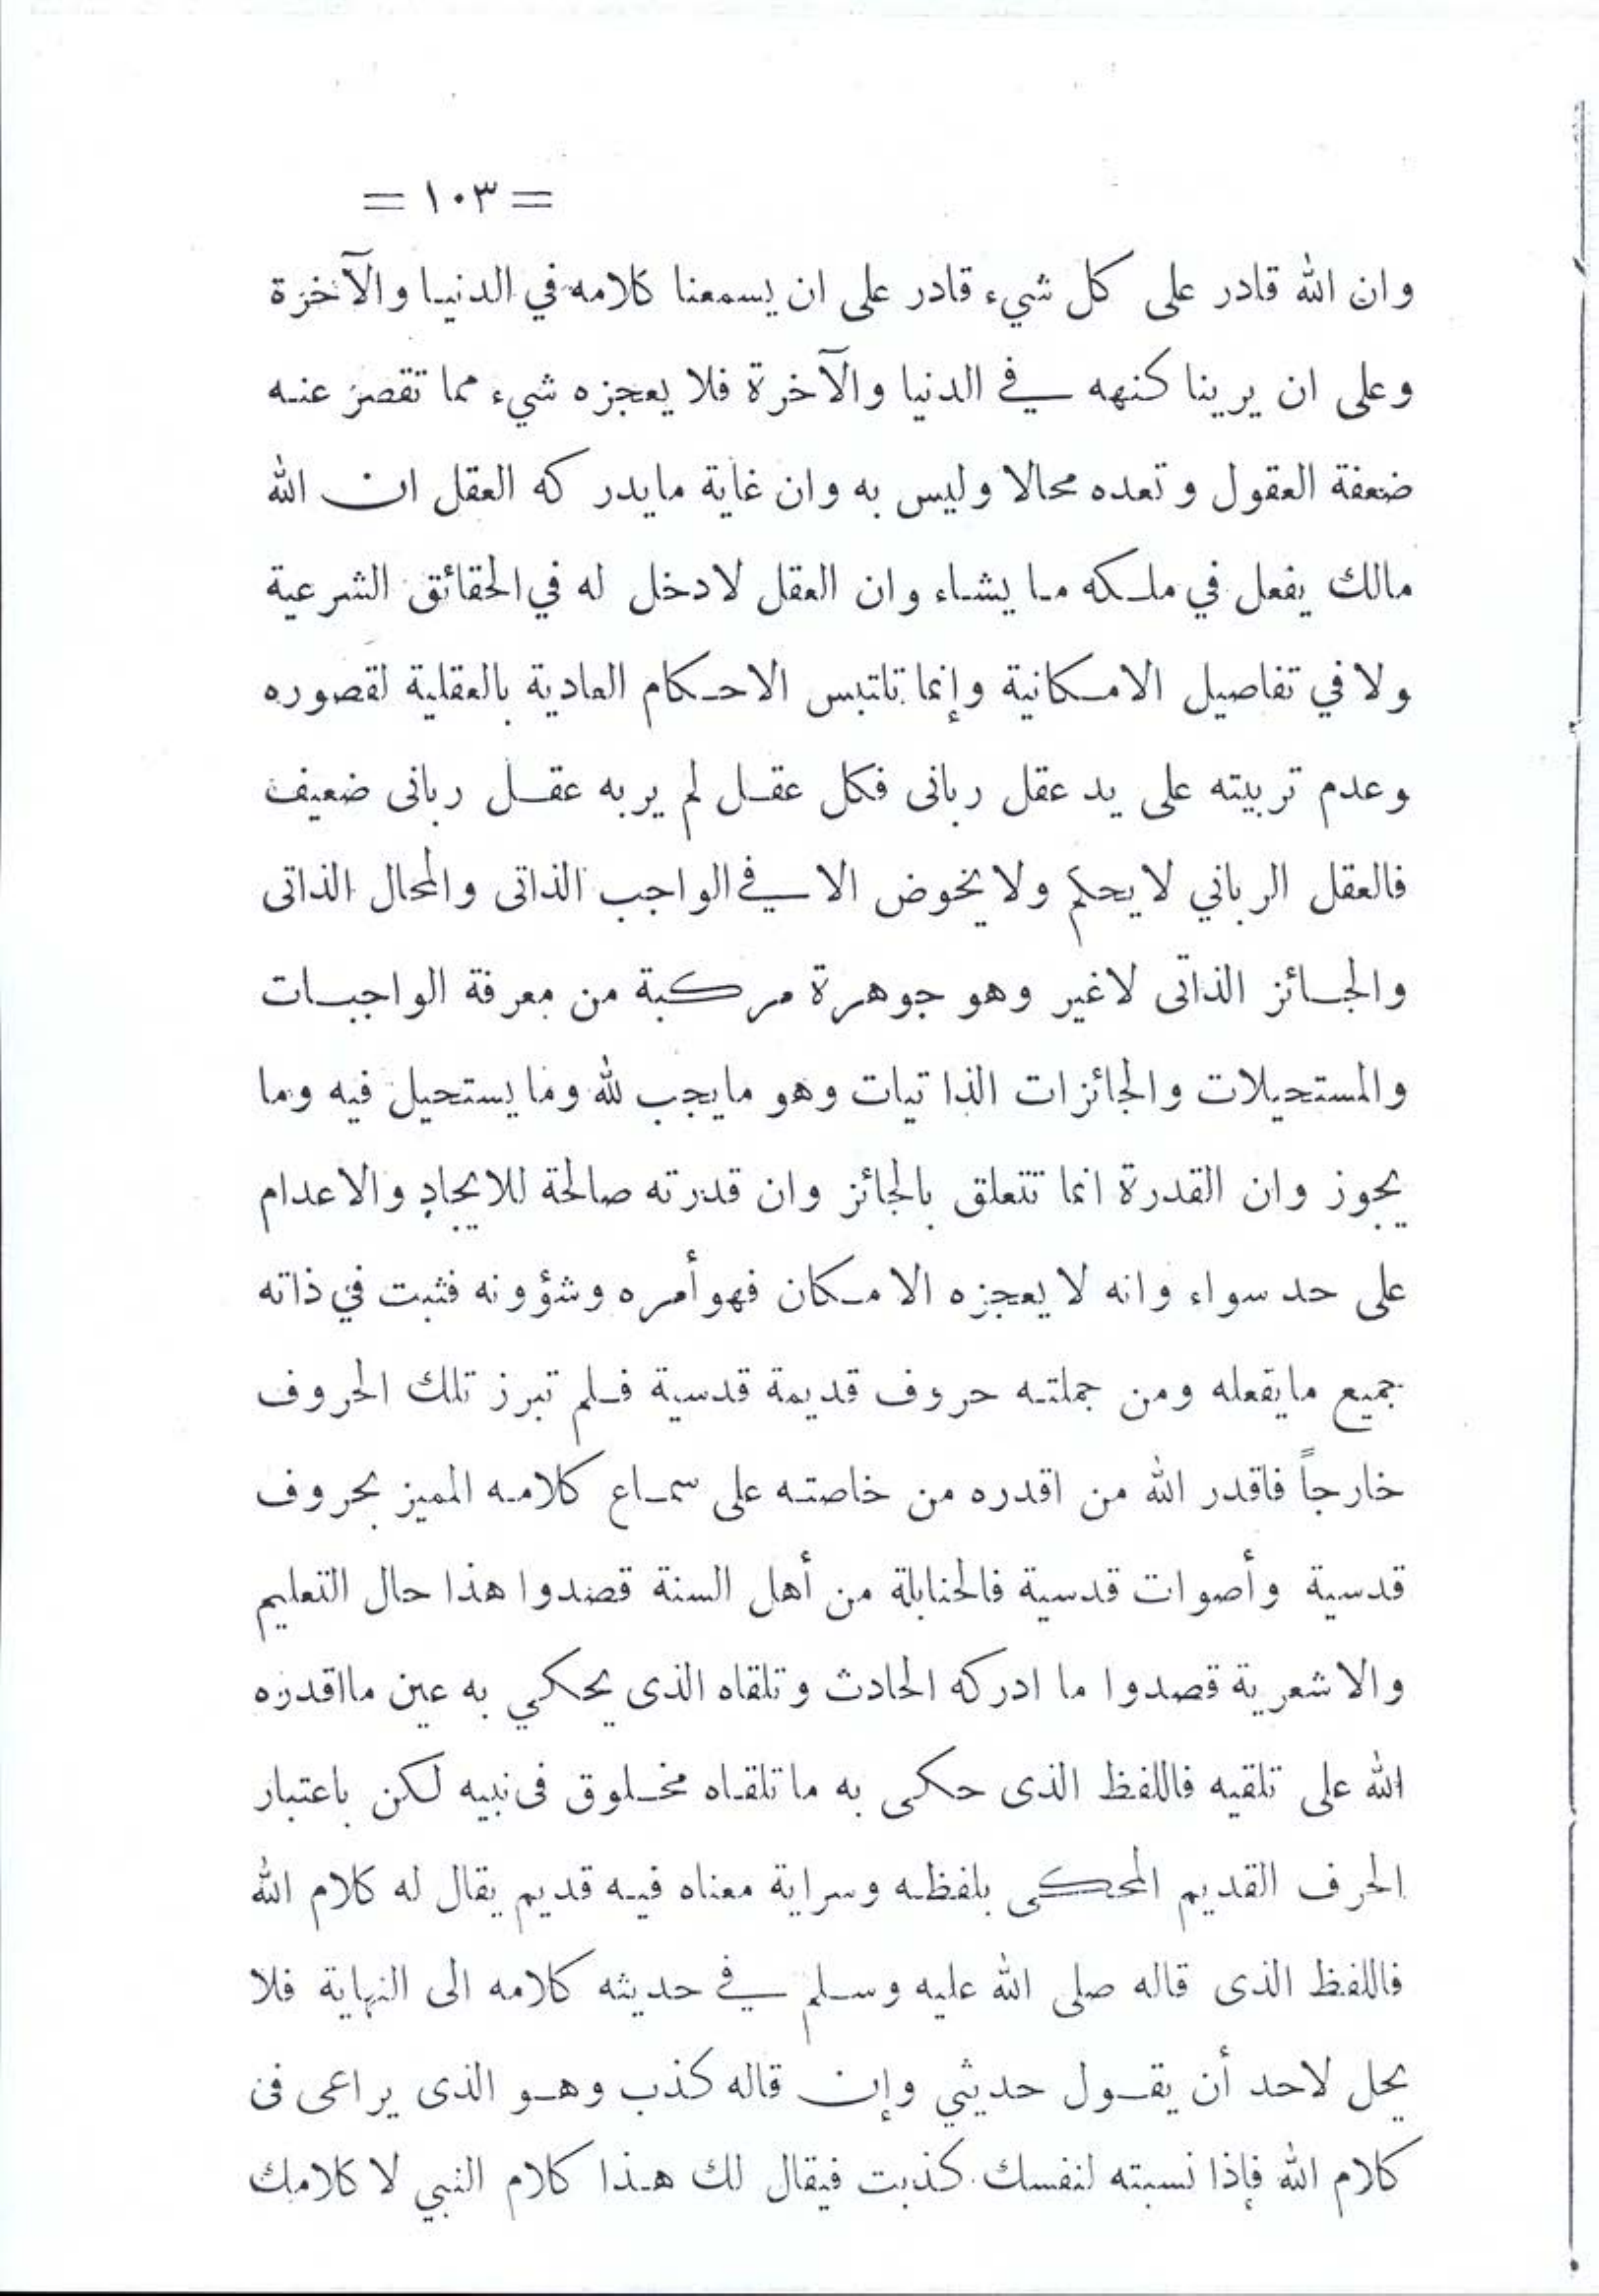 = ١٠٣ =
وان الله قادر على كل شيء قادر على ان يسمعنا كلامه في الدنيا والآخرة
وعلى ان يرينا كنهه في الدنيا والآخرة فلا يعجزه شيء مما تقصر عنه
ضعفة العقول وتعده محالا وليس به وان غاية مايدركه العقل ان الله
مالك يفعل في ملكه ما يشاء وان العقل لادخل له في الحقائق الشرعية
ولا في تفاصيل الامكانية وإنما تلتبس الاحكام العادية بالعقلية لقصوره
وعدم تربيته على يد عقل ربانى فكل عقل لم يربه عقل ربانى ضعيف
فالعقل الرباني لايحكم ولايخوض الا في الواجب الذاتى والمحال الذاتى
والجائز الذاتى لاغير وهو جوهرة مركبة من معرفة الواجبات
والمستحيلات والجائزات الذاتيات وهو مايجب لله ومايستحيل فيه وما
يجوز وان القدرة انما تتعلق بالجائز وان قدرته صالحة للايجاد والاعدام
على حد سواء وانه لايعجزه الامكان فهو أمره وشؤونه فثبت في ذاته
جميع مايفعله ومن جملته حروف قديمة قدسية فلم تبرز تلك الحروف
خارجاً فاقدر الله من اقدره من خاصته على سماع كلامه المميز بحروف
قدسية وأصوات قدسية فالحنابلة من أهل السنة قصدوا هذا حال التعليم
والاشعرية قصدوا ما ادركه الحادث وتلقاه الذى يحكي به عين مااقدره
الله على تلقيه فاللفظ الذى حكى به ما تلقاه مخلوق فى نبيه لكن باعتبار
الحرف القديم المحكى بلفظه وسراية معناه فيه قديم يقال له كلام الله
فاللفظ الذى قاله صلى الله عليه وسلم في حديثه كلامه الى النهاية فلا
يحل لاحد أن يقول حديثي وإن قاله كذب وهو الذى يراعى فى
كلام الله فإذا نسبته لنفسك كذبت فيقال لك هذا كلام النبي لا كلامك